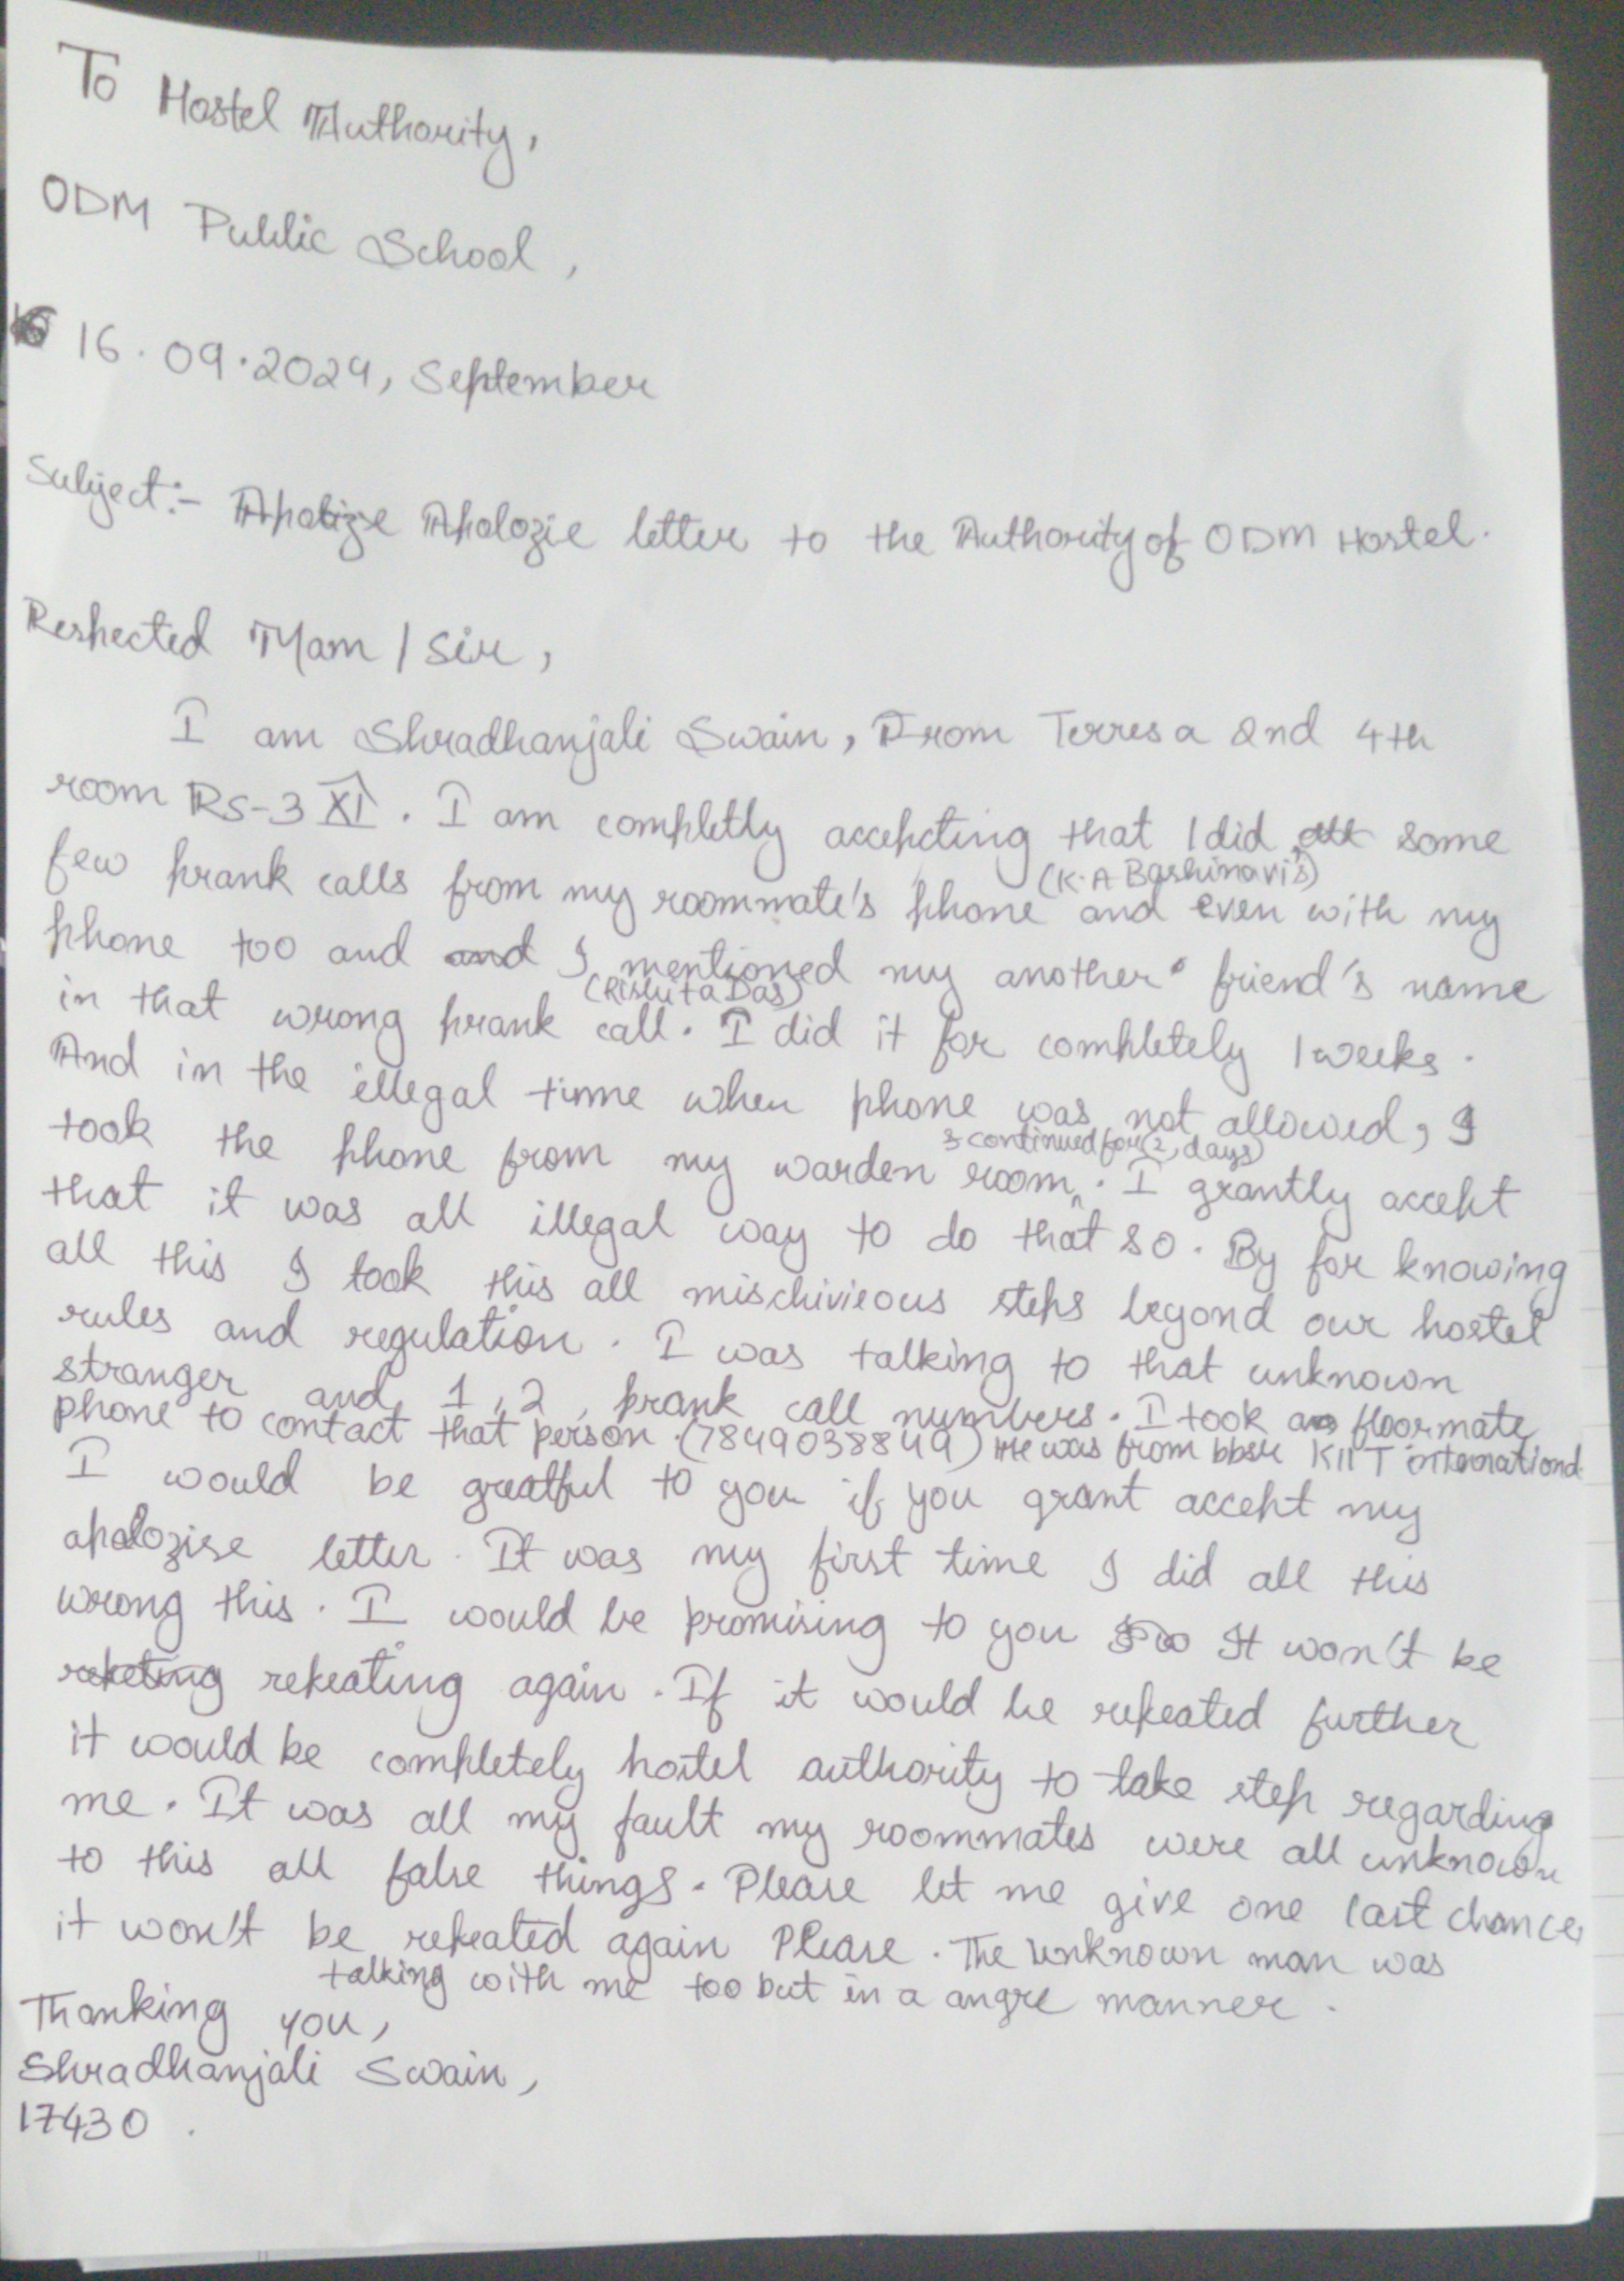 To Hostel Authority,
ODM Public School,
16.09.2024, September
Subject:- Apolizie Apologie letter to the Authority of ODM Hostel.
Respected Mam / Sir,
I am Shradhanjali Swain, From Terresa 2nd 4th
room RS-3 XI. I am completly accepcting that I did all some
few prank calls from my roommate's phone (K.A Bashinavi's) and even with my
phone too and and I mentioned my another friend's name
in that wrong prank call (Rishita Das). I did it for completely 1 weeks.
And in the illegal time when phone was not allowed, I
took the phone from my warden room & continued for (2, days). I grantly accept
that it was all illegal way to do that so. By far knowing
all this I took this all mischivieous steps beyond our hostel
rules and regulation. I was talking to that unknown
stranger and 1, 2, prank call numbers. I took a floormate
phone to contact that person. (7849038849) He was from bbsr KIIT international
I would be greatful to you if you grant accept my
apologise letter. It was my first time I did all this
wrong this. I would be promising to you It won't be
repeting repeating again. If it would be repeated further
it would be completely hostel authority to take step regarding
me. It was all my fault my roommates were all unknown
to this all false things. Please let me give one last chance,
it won't be repeated again Please. The unknown man was
talking with me too but in a angre manner.
Thanking you,
Shradhanjali Swain,
17430.